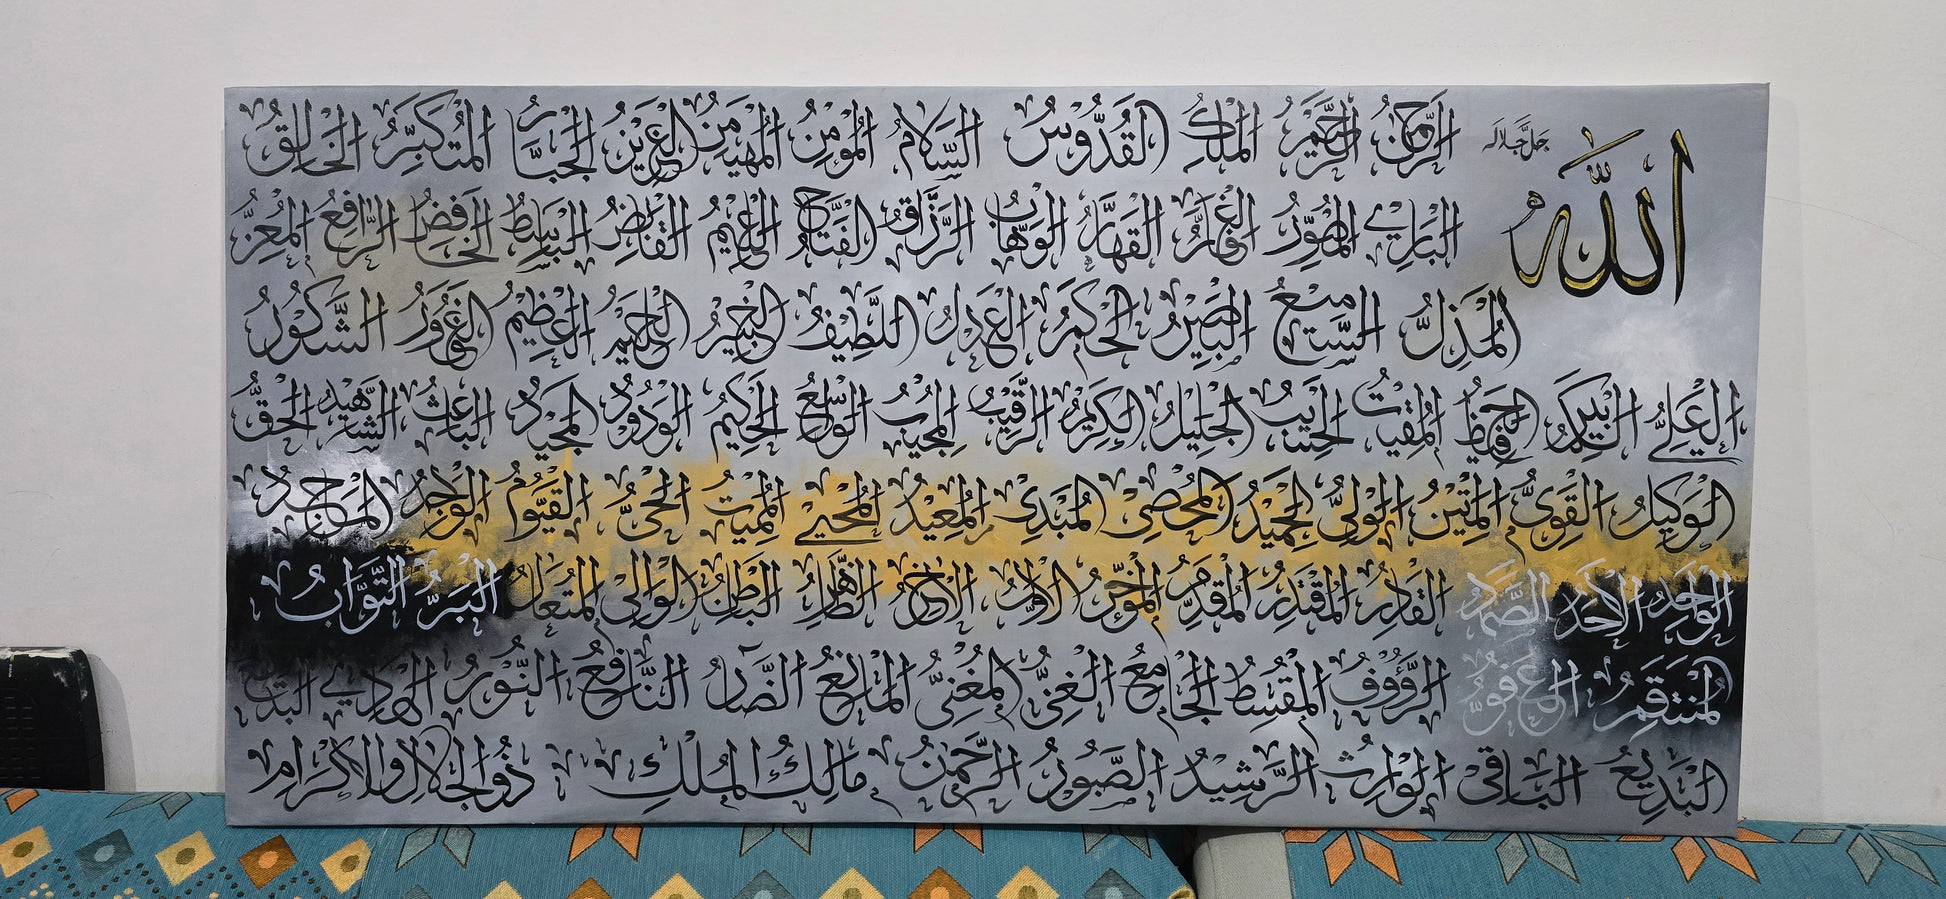 الله جل جلاله
الرحمن الرحيم الملك القدوس السلام المؤمن المهيمن العزيز الجبار المتكبر الخالق
البارئ المصور الغفار القهار الوهاب الرزاق الفتاح العليم القابض الباسط الخافض الرافع المعز
المذل السميع البصير الحكم العدل اللطيف الخبير الحليم العظيم الغفور الشكور
العلي الكبير الحفيظ المقيت الحسيب الجليل الكريم الرقيب المجيب الواسع الحكيم الودود المجيد الباعث الشهيد الحق
الوكيل القوي المتين الولي الحميد المحصي المبدئ المعيد المحيي المميت الحي القيوم الواجد الماجد
الواحد الاحد الصمد القادر المقتدر المقدم المؤخر الاول الاخر الظاهر الباطن الوالي المتعال البر التواب
المنتقم العفو الرؤوف المقسط الجامع الغني المغني المانع الضار النافع النور الهادي البديع
البديع الباقي الوارث الرشيد الصبور الرحمن مالك الملك ذو الجلال والاكرام